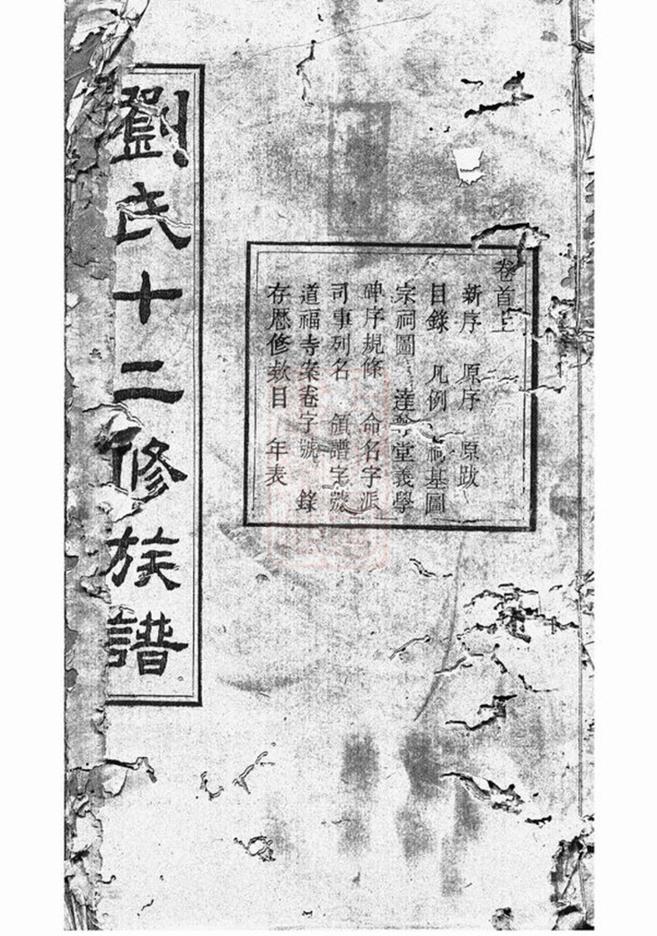 卷首上
新序 原序 原跋
目錄 凡例 祠基圖
宗祠圖 達尊堂義學
碑序規條 命名字派
司事列名 領譜字號
道福寺案卷字號 錄
存厯修欵目 年表
劉氏十二修族譜